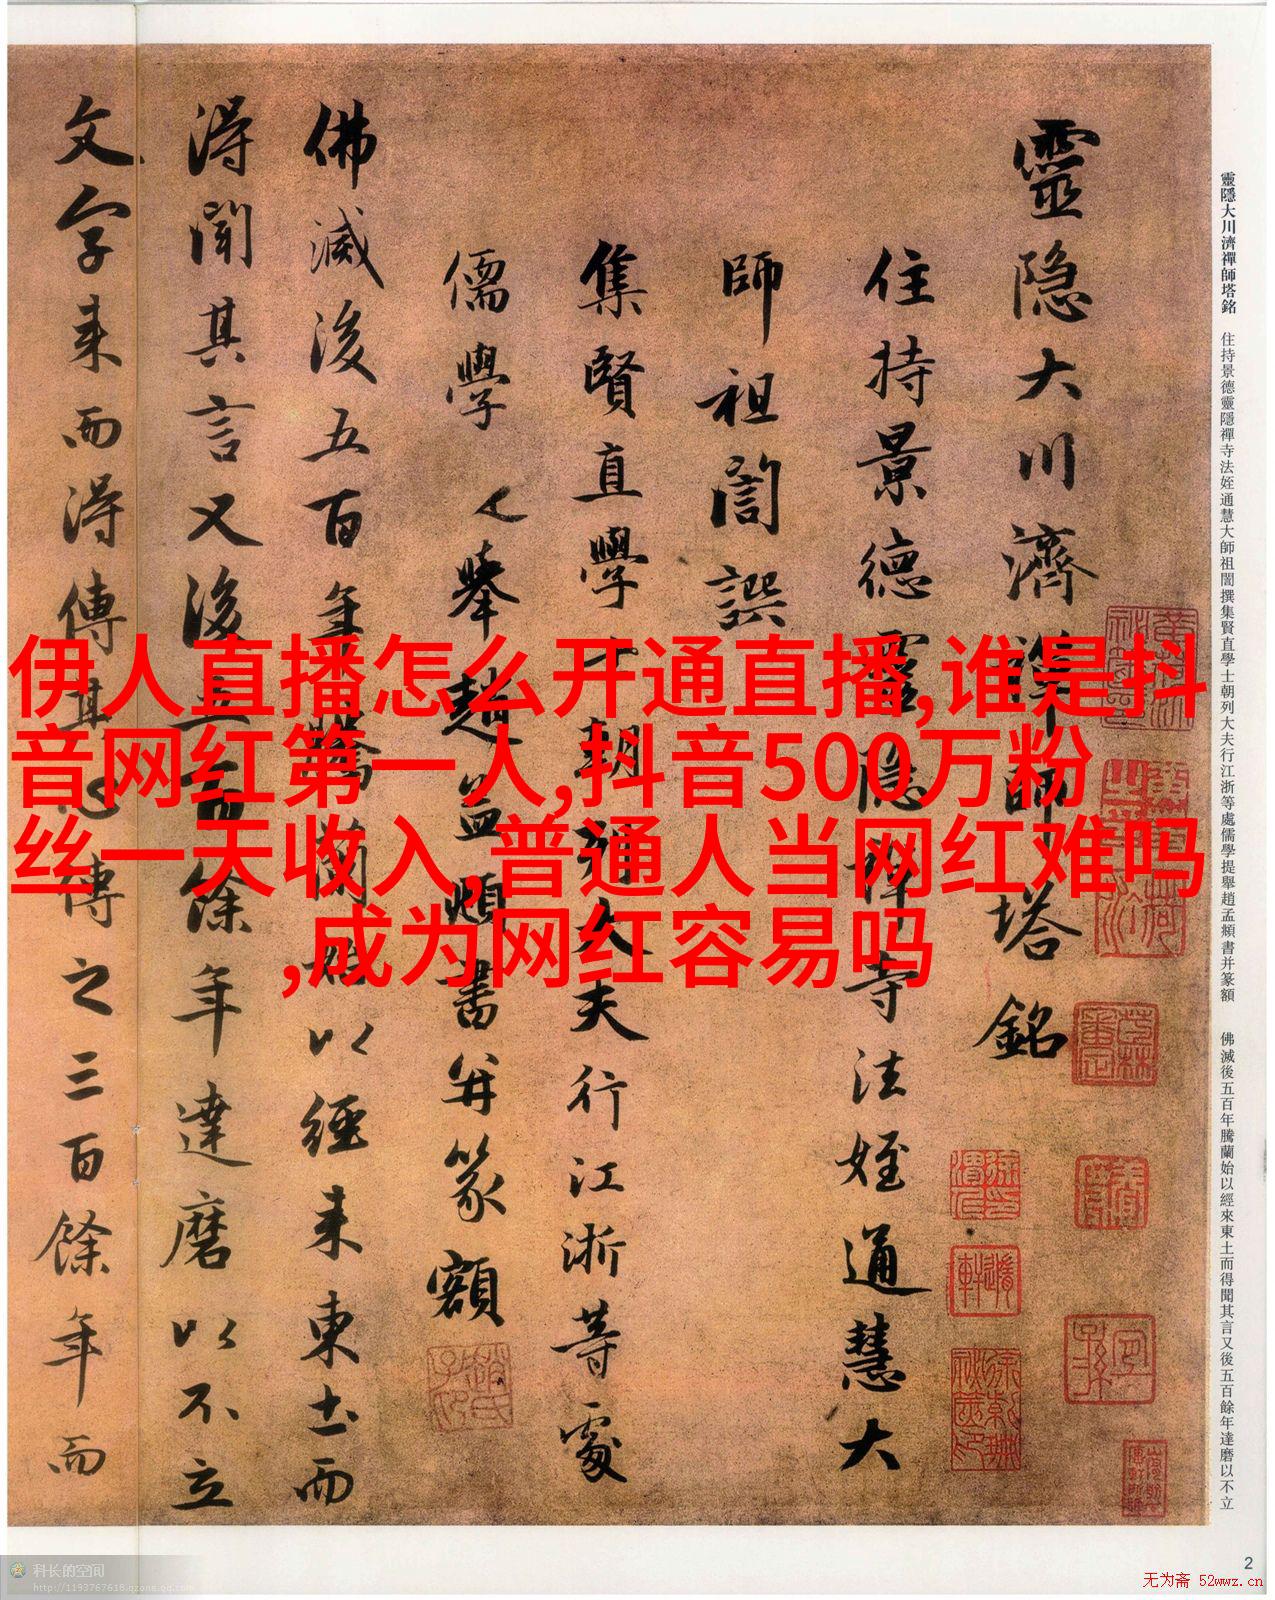 伊人直播怎么开通直播,谁是抖
音网红第一人,抖音500万粉
丝一天收入,普通人当网红难吗
,成为网红容易吗
靈隱大川濟禪師塔銘 住持景德靈隱禪寺法姪通慧大師祖誾撰集賢直學士朝列大夫行江浙等處儒學提舉趙孟頫書并篆額 佛滅後五百年騰蘭始以經來東土而得聞其言又後五百餘年達磨以不立
靈隐大川濟禪師塔銘
住持景德靈隐禅寺法姪通慧大
師祖誾譔
集賢直學士朝列大夫行江浙等處
儒學提舉趙孟頫書并篆額
佛滅後五百年騰蘭始以經来東土而
得聞其言又後五百餘年達磨以不立
文字来而得傳其心傳之三百餘年而
2
科长的空间
http://1193767618.qzone.qq.com
无为斋 52wwz.cn